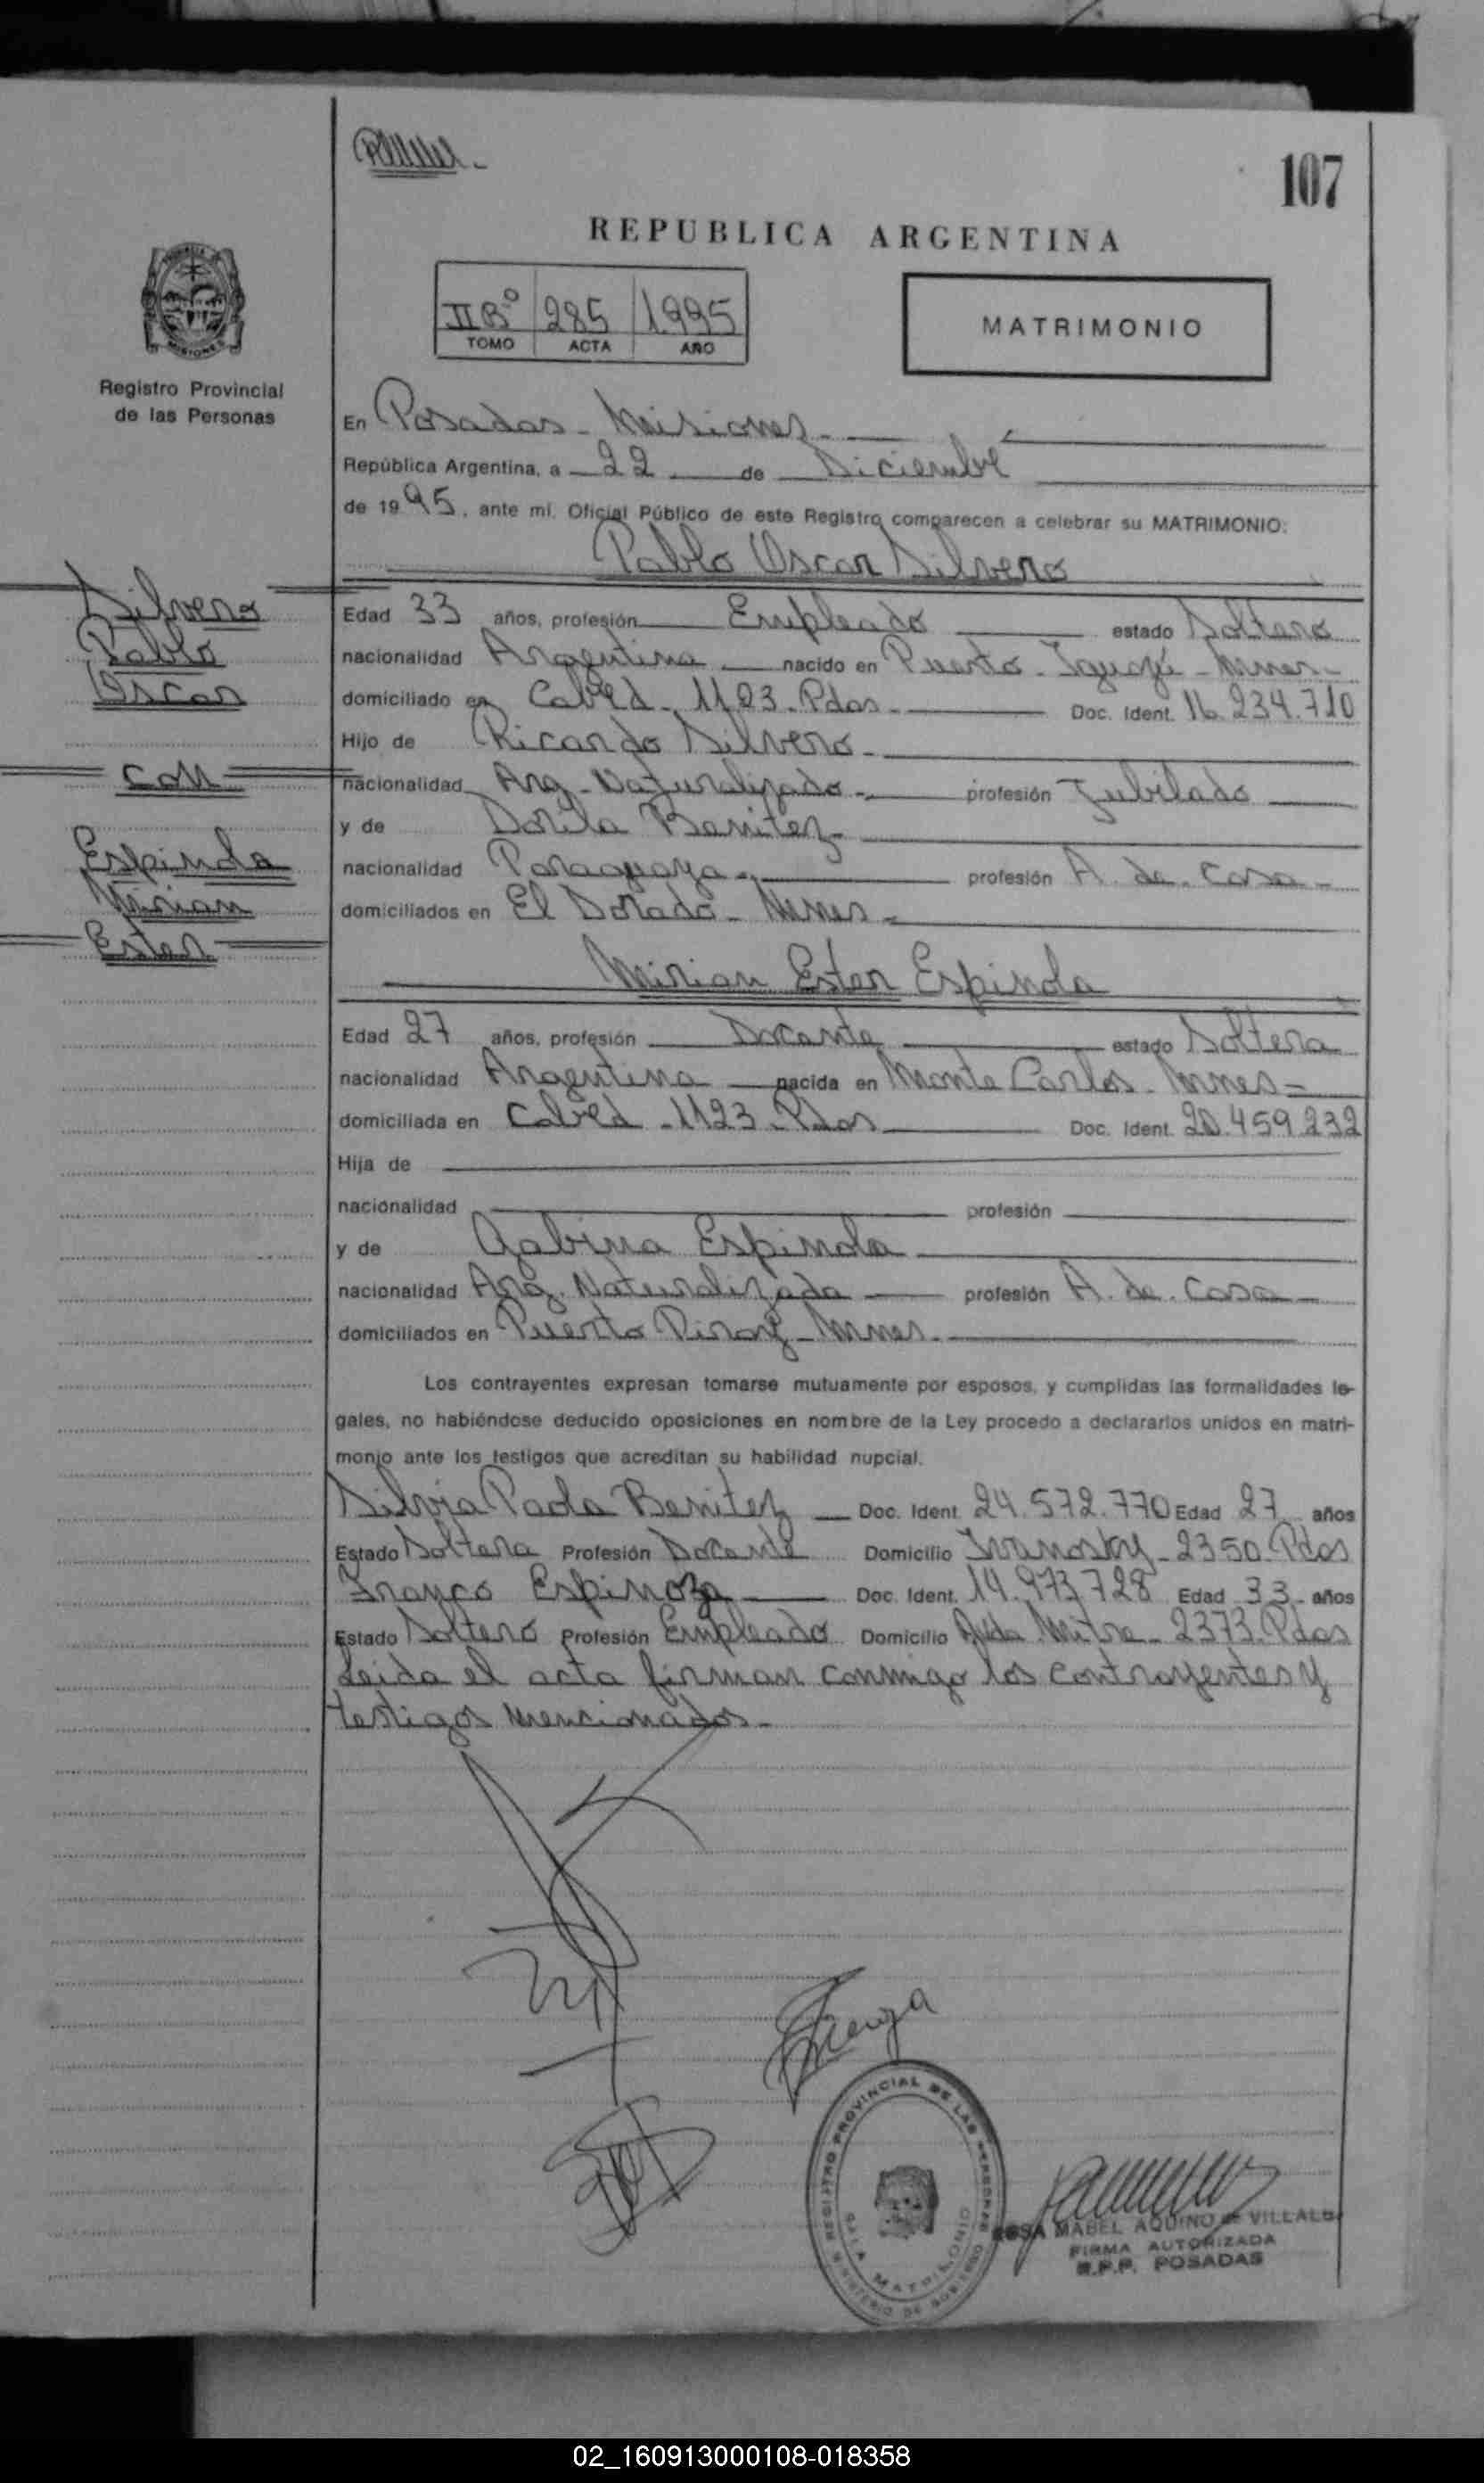 107
REPUBLICA ARGENTINA
IIBº 285 1995
TOMO ACTA AÑO
MATRIMONIO
MISIONES
Registro Provincial
de las Personas
En Posadas - Misiones -
República Argentina, a 22 de Diciembre
de 1995, ante mí, Oficial Público de este Registro comparecen a celebrar su MATRIMONIO:
Pablo Oscar Silvero
Silvero
Pablo
Oscar
con
Espindola
Mirian
Ester
Edad 33 años, profesión Empleado estado Soltero
nacionalidad Argentina nacido en Puerto Iguazú - Mnes -
domiciliado en Cabred - 1123 - Pdas - Doc. Ident. 16.234.710
Hijo de Ricardo Silvero -
nacionalidad Arg - Naturalizado - profesión Jubilado
y de Dorila Benitez -
nacionalidad Paraguaya - profesión A. de. Casa -
domiciliados en El Dorado - Mnes -
Mirian Ester Espindola
Edad 27 años, profesión Docente estado Soltera
nacionalidad Argentina nacida en Monte Carlos - Mnes -
domiciliada en Cabred - 1123 - Pdas Doc. Ident. 20.459.232
Hija de
nacionalidad profesión
y de Gabina Espindola
nacionalidad Arg. Naturalizada profesión A. de. Casa -
domiciliados en Puerto Piray - Mnes -
Los contrayentes expresan tomarse mutuamente por esposos, y cumplidas las formalidades le-
gales, no habiéndose deducido oposiciones en nombre de la Ley procedo a declararlos unidos en matri-
monio ante los testigos que acreditan su habilidad nupcial.
Silvia Paola Benitez Doc. Ident. 24.572.770 Edad 27 años
Estado Soltera Profesión Docente Domicilio Ivanosky - 2350 - Pdas
Franco Espinoza Doc. Ident. 14.973.728 Edad 33 - años
Estado Soltero Profesión Empleado Domicilio Avda. Mitre - 2373 - Pdas
Leida el acta firman conmigo los contrayentes y
testigos mencionados -
REGISTRO PROVINCIAL DE LAS PERSONAS
SALA MATRIMONIO
MINISTERIO DE GOBIERNO
ROSA MABEL AQUINO de VILLALBA
FIRMA AUTORIZADA
R.P.P. POSADAS
02_160913000108-018358